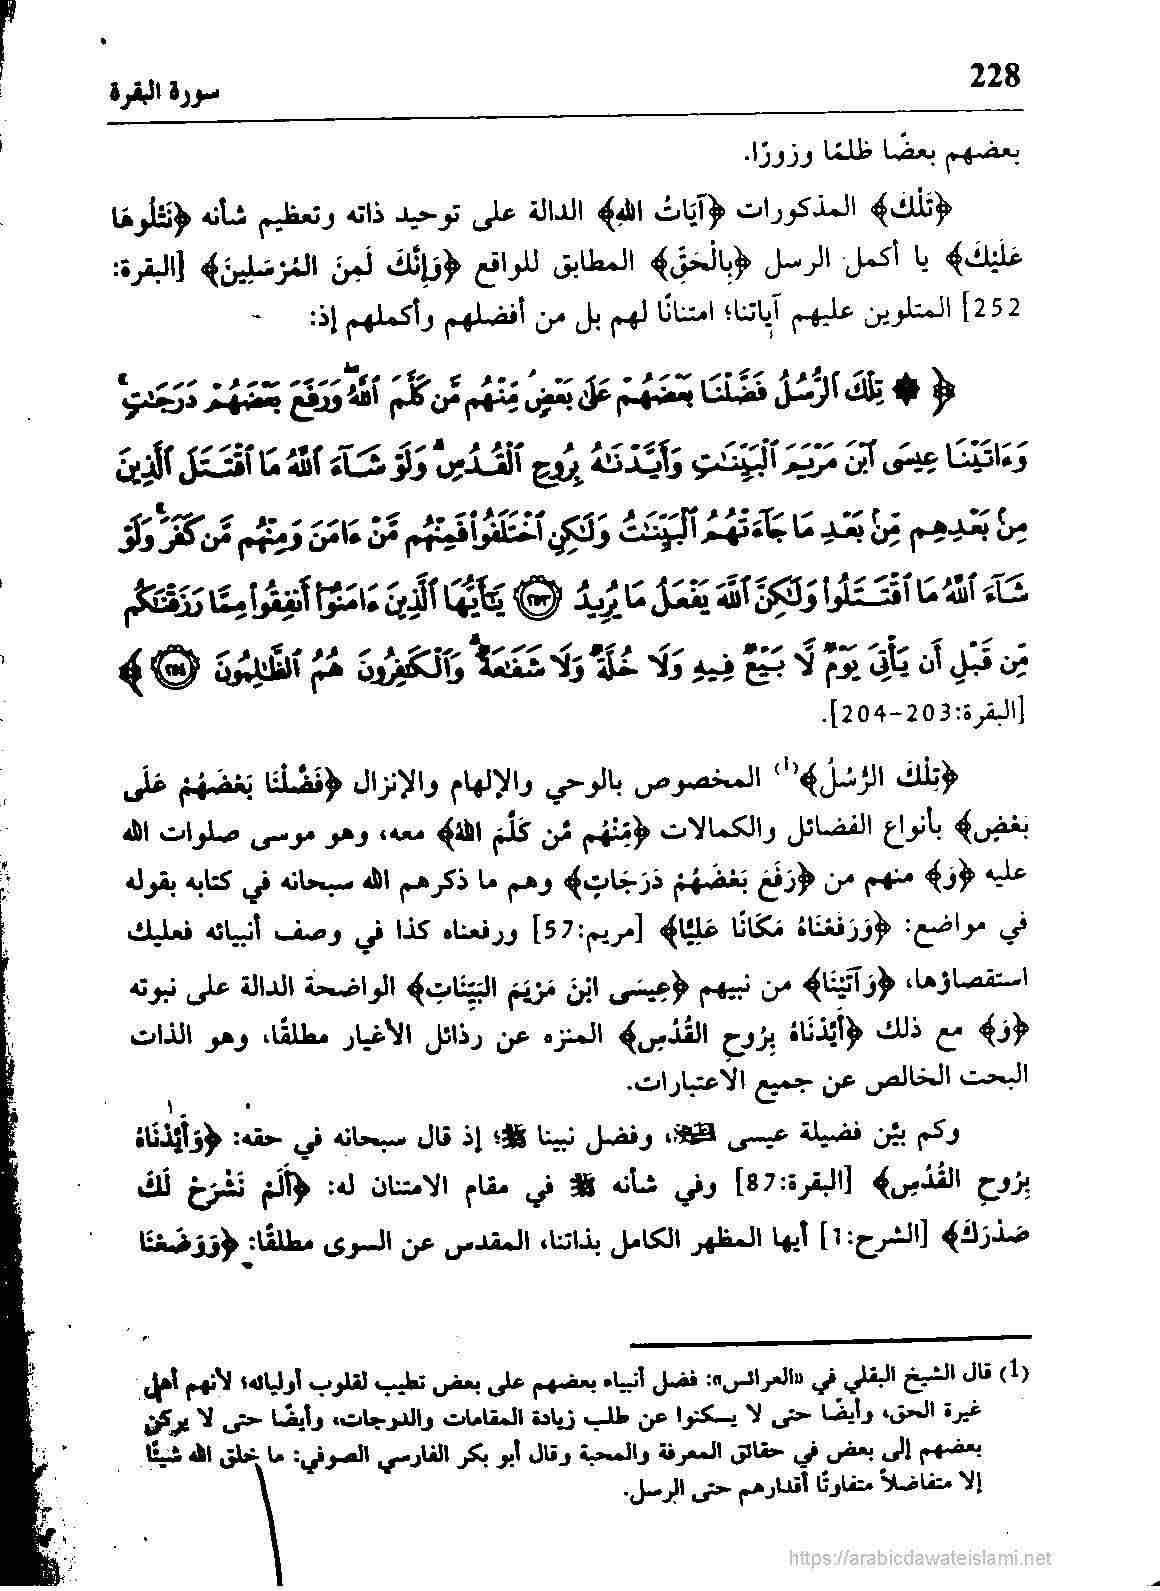 228
سورة البقرة
بعضهم بعضًا ظلمًا وزورًا.
﴿تِلْكَ﴾ المذكورات ﴿آيَاتُ اللهِ﴾ الدالة على توحيد ذاته وتعظيم شأنه ﴿نَتْلُوهَا
عَلَيْكَ﴾ يا أكمل الرسل ﴿بِالْحَقِّ﴾ المطابق للواقع ﴿وَإِنَّكَ لَمِنَ المُرْسَلِينَ﴾ [البقرة:
252] المتلوين عليهم آياتنا؛ امتنانًا لهم بل من أفضلهم وأكملهم إذ:
﴿ ۞ تِلْكَ ٱلرُّسُلُ فَضَّلْنَا بَعْضَهُمْ عَلَىٰ بَعْضٍ مِّنْهُم مَّن كَلَّمَ ٱللَّهُ ۖ وَرَفَعَ بَعْضَهُمْ دَرَجَٰتٍ ۚ
وَءَاتَيْنَا عِيسَى ٱبْنَ مَرْيَمَ ٱلْبَيِّنَٰتِ وَأَيَّدْنَٰهُ بِرُوحِ ٱلْقُدُسِ ۗ وَلَوْ شَآءَ ٱللَّهُ مَا ٱقْتَتَلَ ٱلَّذِينَ
مِنۢ بَعْدِهِم مِّنۢ بَعْدِ مَا جَآءَتْهُمُ ٱلْبَيِّنَٰتُ وَلَٰكِنِ ٱخْتَلَفُوا۟ فَمِنْهُم مَّنْ ءَامَنَ وَمِنْهُم مَّن كَفَرَ ۚ وَلَوْ
شَآءَ ٱللَّهُ مَا ٱقْتَتَلُوا۟ وَلَٰكِنَّ ٱللَّهَ يَفْعَلُ مَا يُرِيدُ ۝٢٥٣ يَٰٓأَيُّهَا ٱلَّذِينَ ءَامَنُوٓا۟ أَنفِقُوا۟ مِمَّا رَزَقْنَٰكُم
مِّن قَبْلِ أَن يَأْتِىَ يَوْمٌ لَّا بَيْعٌ فِيهِ وَلَا خُلَّةٌ وَلَا شَفَٰعَةٌ ۗ وَٱلْكَٰفِرُونَ هُمُ ٱلظَّٰلِمُونَ ۝٢٥٤ ﴾
[البقرة:203-204].
﴿تِلْكَ الرُّسُلُ﴾(1) المخصوص بالوحي والإلهام والإنزال ﴿فَضَّلْنَا بَعْضَهُمْ عَلَى
بَعْضٍ﴾ بأنواع الفضائل والكمالات ﴿مِّنْهُم مَّن كَلَّمَ اللهُ﴾ معه، وهو موسى صلوات الله
عليه ﴿وَ﴾ منهم من ﴿رَفَعَ بَعْضَهُمْ دَرَجَاتٍ﴾ وهم ما ذكرهم الله سبحانه في كتابه بقوله
في مواضع: ﴿وَرَفَعْنَاهُ مَكَانًا عَلِيًّا﴾ [مريم:57] ورفعناه كذا في وصف أنبيائه فعليك
استقصاؤها، ﴿وَآتَيْنَا﴾ من نبيهم ﴿عِيسَى ابْنَ مَرْيَمَ البَيِّنَاتِ﴾ الواضحة الدالة على نبوته
﴿وَ﴾ مع ذلك ﴿أَيَّدْنَاهُ بِرُوحِ القُدُسِ﴾ المنزه عن رذائل الأغيار مطلقًا، وهو الذات
البحت الخالص عن جميع الاعتبارات.
وكم بيَّن فضيلة عيسى ، وفضل نبينا ﷺ؛ إذ قال سبحانه في حقه: ﴿وَأَيَّدْنَاهُ
بِرُوحِ القُدُسِ﴾ [البقرة:87] وفي شأنه ﷺ في مقام الامتنان له: ﴿أَلَمْ نَشْرَحْ لَكَ
صَدْرَكَ﴾ [الشرح:1] أيها المظهر الكامل بذاتنا، المقدس عن السوى مطلقًا: ﴿وَوَضَعْنَا
(1) قال الشيخ البقلي في «العرائس»: فضل أنبياء بعضهم على بعض تطيب لقلوب أوليائه؛ لأنهم أهل
غيرة الحق، وأيضًا حتى لا يسكنوا عن طلب زيادة المقامات والدرجات، وأيضًا حتى لا يركن
بعضهم إلى بعض في حقائق المعرفة والمحبة وقال أبو بكر الفارسي الصوفي: ما خلق الله شيئًا
إلا متفاضلاً متفاوتًا أقدارهم حتى الرسل.
https://arabicdawateislami.net